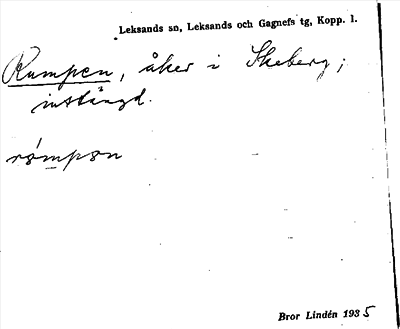 Leksands sn, Leksands och Gagnefs tg, Kopp. l.
Rumpen, åker i Skeberg;
instängd.
römpən
Bror Lindén 1935